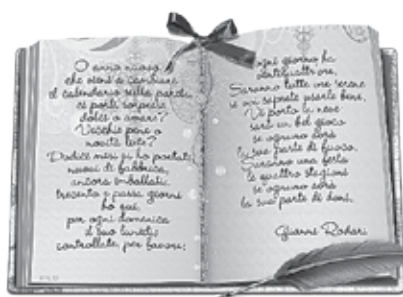 O anno nuovo,
che vieni a cambiare
il calendario sulla parete,
ci porti sorprese
dolci o amare?
Vecchie pene o
novità liete?
Dodici mesi vi ho portati,
nuovi di fabbrica,
ancora imballati;
trecento e passa giorni
ho qui,
per ogni domenica
il suo lunedì;
controllate, per favore:
ogni giorno ha
ventiquattr'ore.
Saranno tutte ore serene
se voi saprete usarle bene.
Vi porto la neve:
sarà un bel gioco
se ognuno avrà
la sua parte di fuoco.
Saranno una festa
le quattro stagioni
se ognuno avrà
la sua parte di doni.
Gianni Rodari